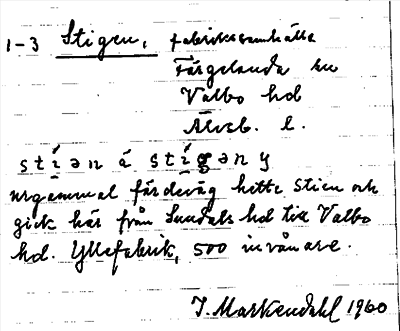 1-3 Stigen, fabrikssamhälle
Färgelanda sn
Valbo hd
Älvsb. l.
stíən á stígəny
urgammal färdeväg hette Stien och
gick här från Sundals hd till Valbo
hd. Yllefabrik, 500 invånare.
J. Markendahl 1960